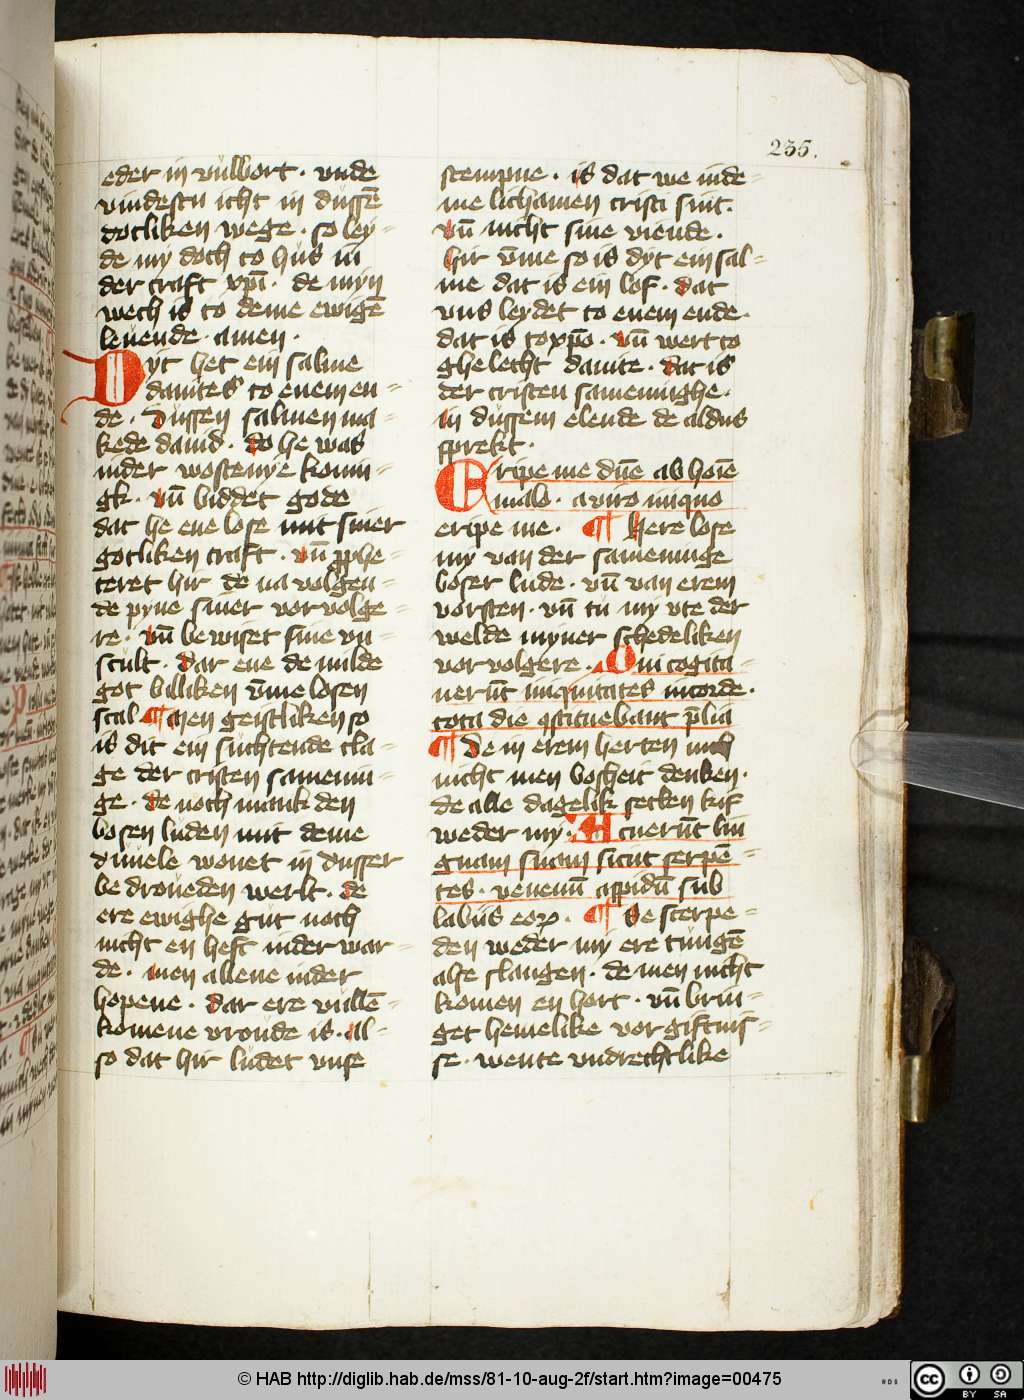 235.
eder in vulbort · vnde
vindestu icht in dussē
dotliken wege · so ley=
de my doch to hus in
der craft xpī · de myn
wech is to deme ewigē
leuende · amen ·
Dyt het ein salme
dauites to enem en=
de · Dussen salmen ma=
kede dauid · do he was
inder wostenye konin=
gk · vn̄ biddet gode
dat he ene lose mit siner
gotliken craft · vn̄ pphe=
teret hir de na volgen=
de pyne siner vorvolge=
re · vn̄ bewiset sine vn=
scult · Dar ene de milde
got billiken v̄me losen
scal ¶ Men geistliken so
is dit ein suchtende cla=
ge der cristen samenin=
ge · de noch mank den
bosen luden mit deme
duuele wonet in dusser
bedroueden werlt · de
ere ewighe gut noch
nicht en heft inder war=
de · men allene inder
hopene · dar ere vullē=
komene vroude is · al=
so dat hir ludet vnse
stempne · is dat we inde=
me lichamen cristi sint ·
vn̄ nicht sine viende ·
hir v̄me so is dyt ein sal=
me dat is ein lof · dat
vns leydet to enem ende ·
dat is to xpō · vn̄ wert to
ghelecht dauite · dat is
der cristen sameninghe ·
in dussem elende de aldus
sprekt ·
Eripe me dn̄e ab hoīe
malo · a viro iniquo
eripe me · ¶ Here lose
my van der sameninge
boser lude · vn̄ van erem
vorsten · vn̄ tu my vte der
welde myner schedeliken
vorvolgere · Qui cogita=
uerūt iniquitates in corde ·
tota die ꝯstituebant p̄lia
¶ De in erem herten
nicht men bosheit denken ·
de alle dagelik setten kif
weder my · Acuerūt lin
guam suam sicut serpē=
tes · venenū aspidū sub
labiis eoꝝ · ¶ Se scerpe=
den weder my ere tungē
alse slangen · de men nicht
komen en hort · vn̄ brin=
get hemelike vorgiftnis=
se · wente vndrechtlike
© HAB http://diglib.hab.de/mss/81-10-aug-2f/start.htm?image=00475
cc BY SA